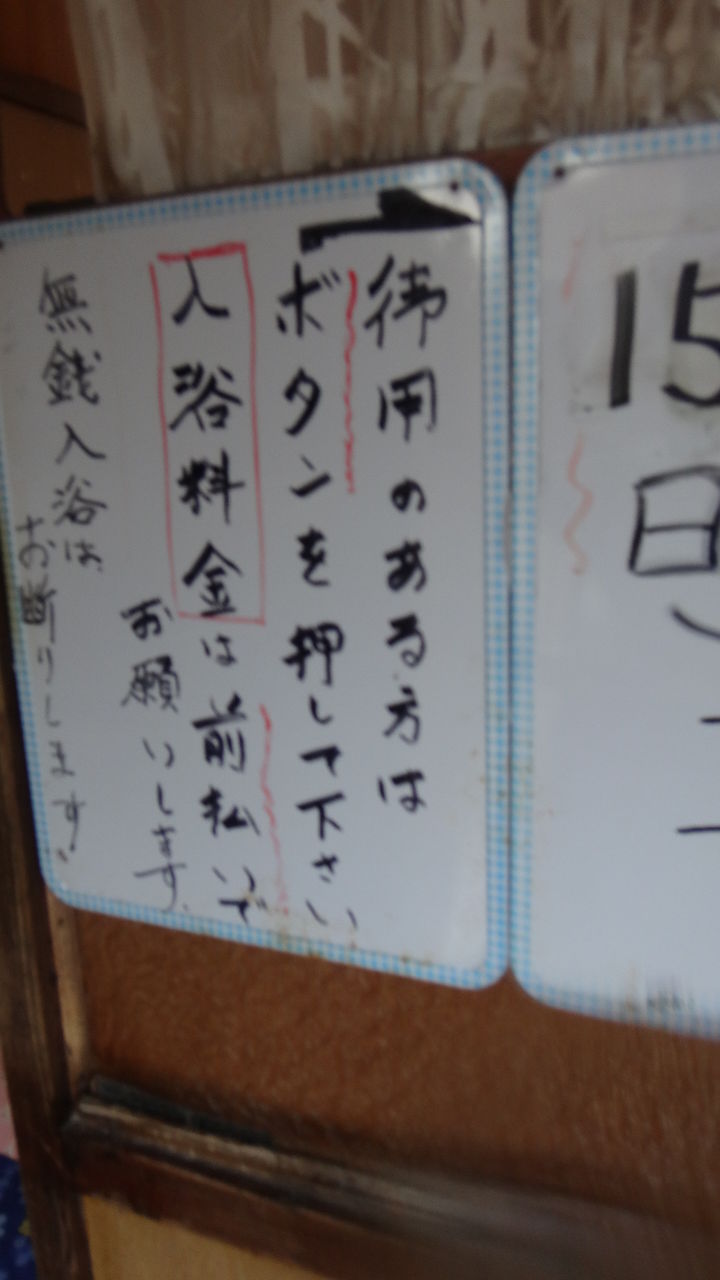 御用のある方は
ボタンを押して下さい
入浴料金は前払いで
お願いします。
無銭入浴は
お断りします。
15
日